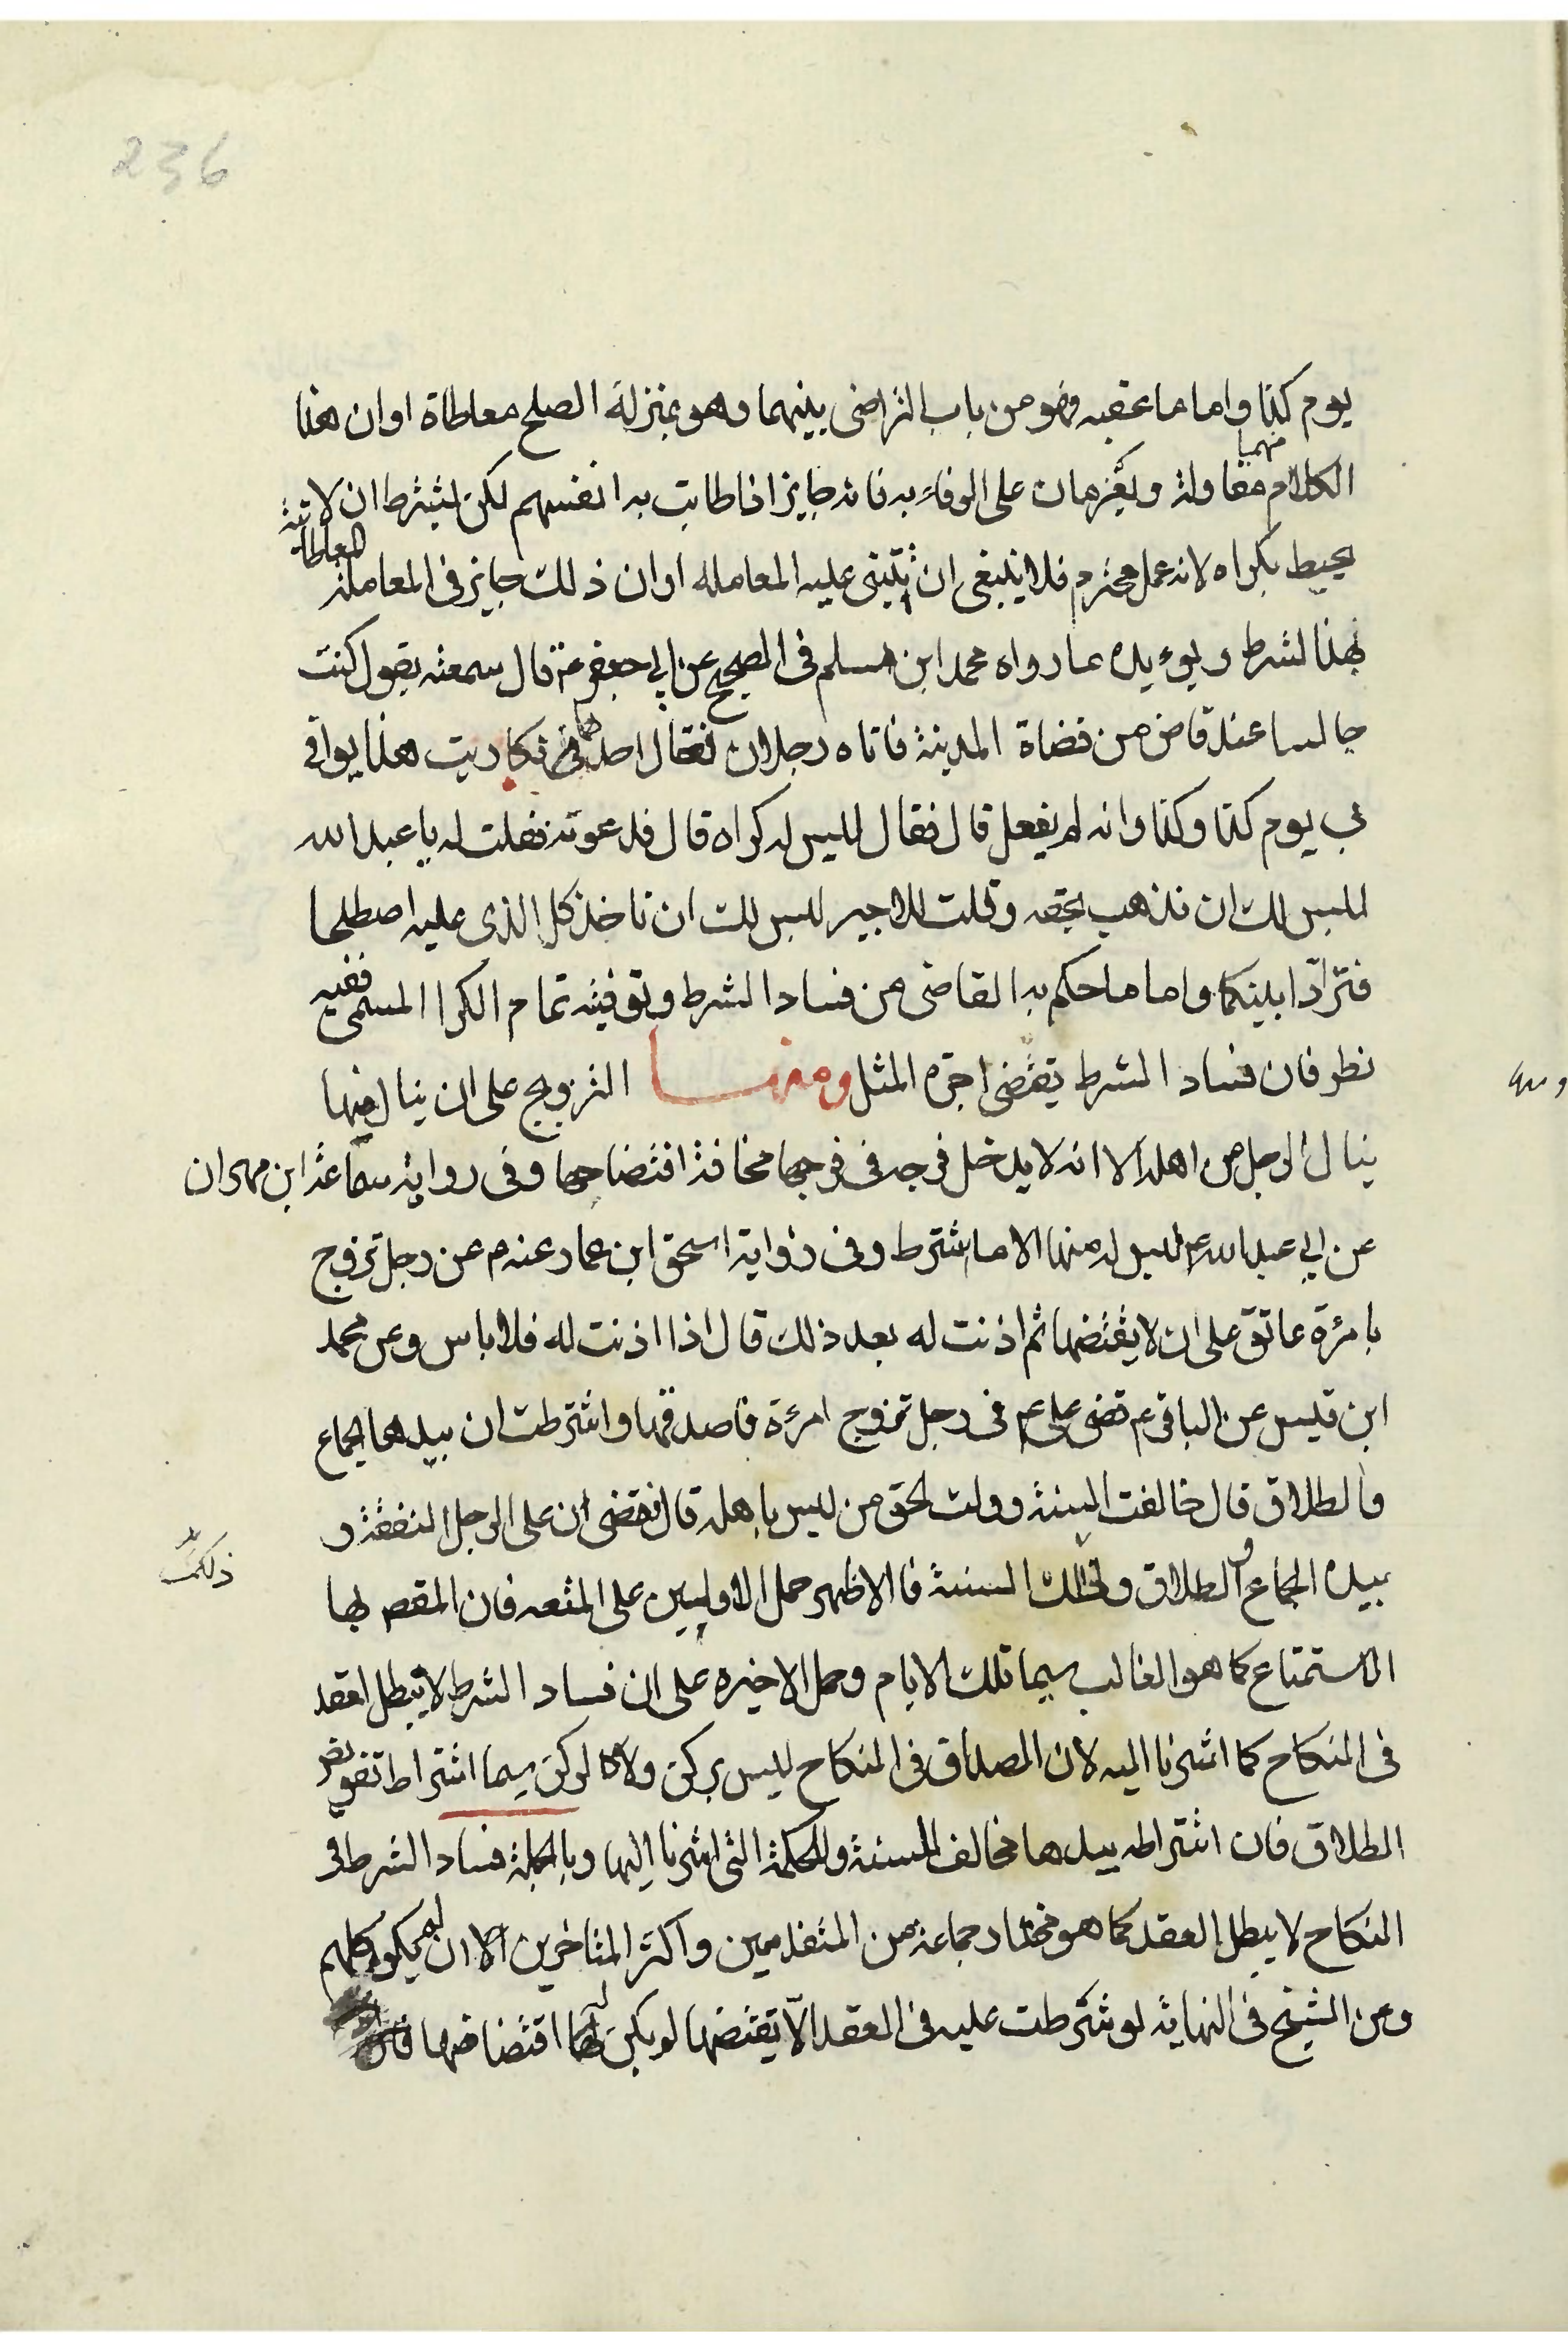 236
يوم كذا واما ما عقبه فهو من باب التراضى بينهما وهو بمنزلة الصلح معاطاة او ان هذا
الكلام منهما مقاولة ويعزمان على الوفاء به فانه جايز اذا طابت به انفسهم لكن يشترط ان لا
يحيط بكراه لانه عمل محترم فلا ينبغى ان يبتنى عليه المعامله او ان ذلك جايز فى المعاملة المعاطاتية
بهذا الشرط ويؤيده ما رواه محمد ابن مسلم فى الصحيح عن ابي جعفر ع قال سمعته يقول كنت
جالسا عند قاض من قضاة المدينة فاتاه رجلان فقال احدهما انى تكاريت هذا يوافى
بي يوم كذا وكذا وانه لم يفعل قال فقال ليس له كراه قال فدعوته فقلت له يا عبد الله
ليس لك ان تذهب بحقه وقلت للاجير ليس لك ان تاخذ كل الذى عليه اصطلحا
فترادّا بينكما واما ما حكم به القاضى من فساد الشرط وتوفيته تمام الكرا المسمى ففيه
نظر فان فساد الشرط يقتضى اجرة المثل ومنهــا التزويج على ان ينال منها
ينال الرجل من اهله الا انه لا يدخل فرجه فى فرجها مخافة افتضاحها وفى رواية سماعة ابن مهران
عن ابي عبد الله ع ليس له منها الا ما اشترط وفى رواية اسحق ابن عمار عنه م عن رجل تزوج
بامرئة عاتق على ان لا يفتضها ثم اذنت له بعد ذلك قال اذا اذنت له فلا باس وعن محمد
ابن قيس عن الباقر ع قضى على ع فى رجل تزوج امرئة فاصدقها واشترطت ان بيدها الجماع
والطلاق قال خالفت السنة وولت الحق من ليس باهله قال فقضى ان على الرجل النفقة و
بيده الجماع والطلاق وذلك السنة فالاظهر حمل الاوليين على المتعه فان المقصد بها
ذلك
الاستمتاع كما هو الغالب سيما تلك الايام وحمل الاخيره على ان فساد الشرط لا يبطل العقد
فى النكاح كما اشرنا اليه لان الصداق فى النكاح ليس بركن ولا كالركن سيما اشتراط تفويض
الطلاق فان اشتراطه بيدها مخالف للسنة وللحكمة التى اشرنا اليها وبالجملة فساد الشرط فى
النكاح لا يبطل العقد كما هو مختار جماعة من المتقدمين واكثر المتاخرين الا ان يكون كلهم
وعن الشيخ فى النهاية لو شرطت عليه فى العقد الّا يفتضها لم يكن له افتضاضها فان